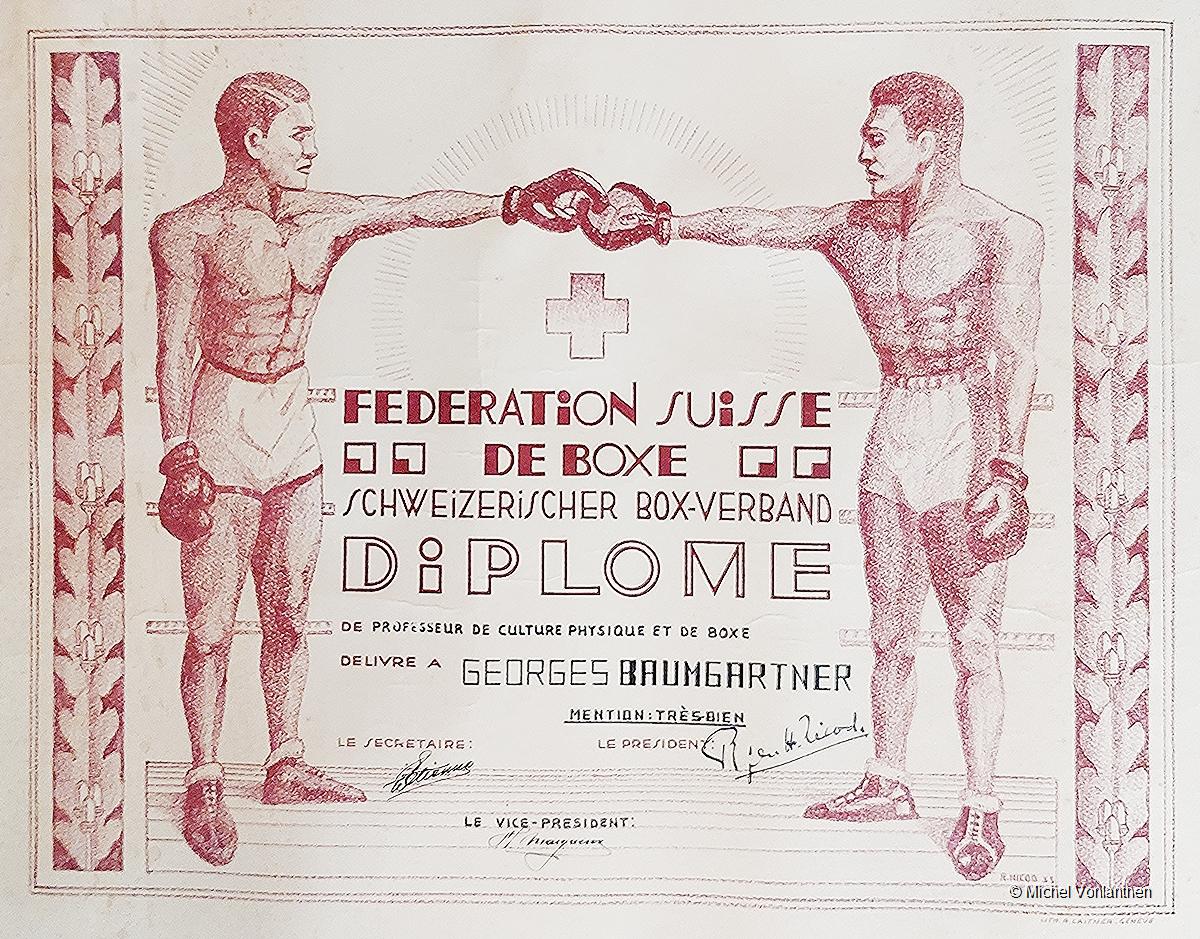 FEDERATiON SUiSSE
DE BOXE
SCHWEiZERiSCHER BOX-VERBAND
DiPLOME
DE PROFESSEUR DE CULTURE PHYSIQUE ET DE BOXE
DELIVRE A GEORGES BAUMGARTNER
MENTION: TRÈS-BIEN
LE SECRETAIRE: LE PRESIDENT:
LE VICE-PRESIDENT:
R. NICOD
© Michel Vonlanthen